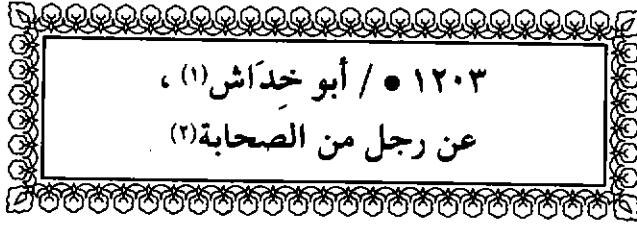 ١٢٠٣ • / أبو خِدَاش(١) ،
عن رجل من الصحابة(٢)